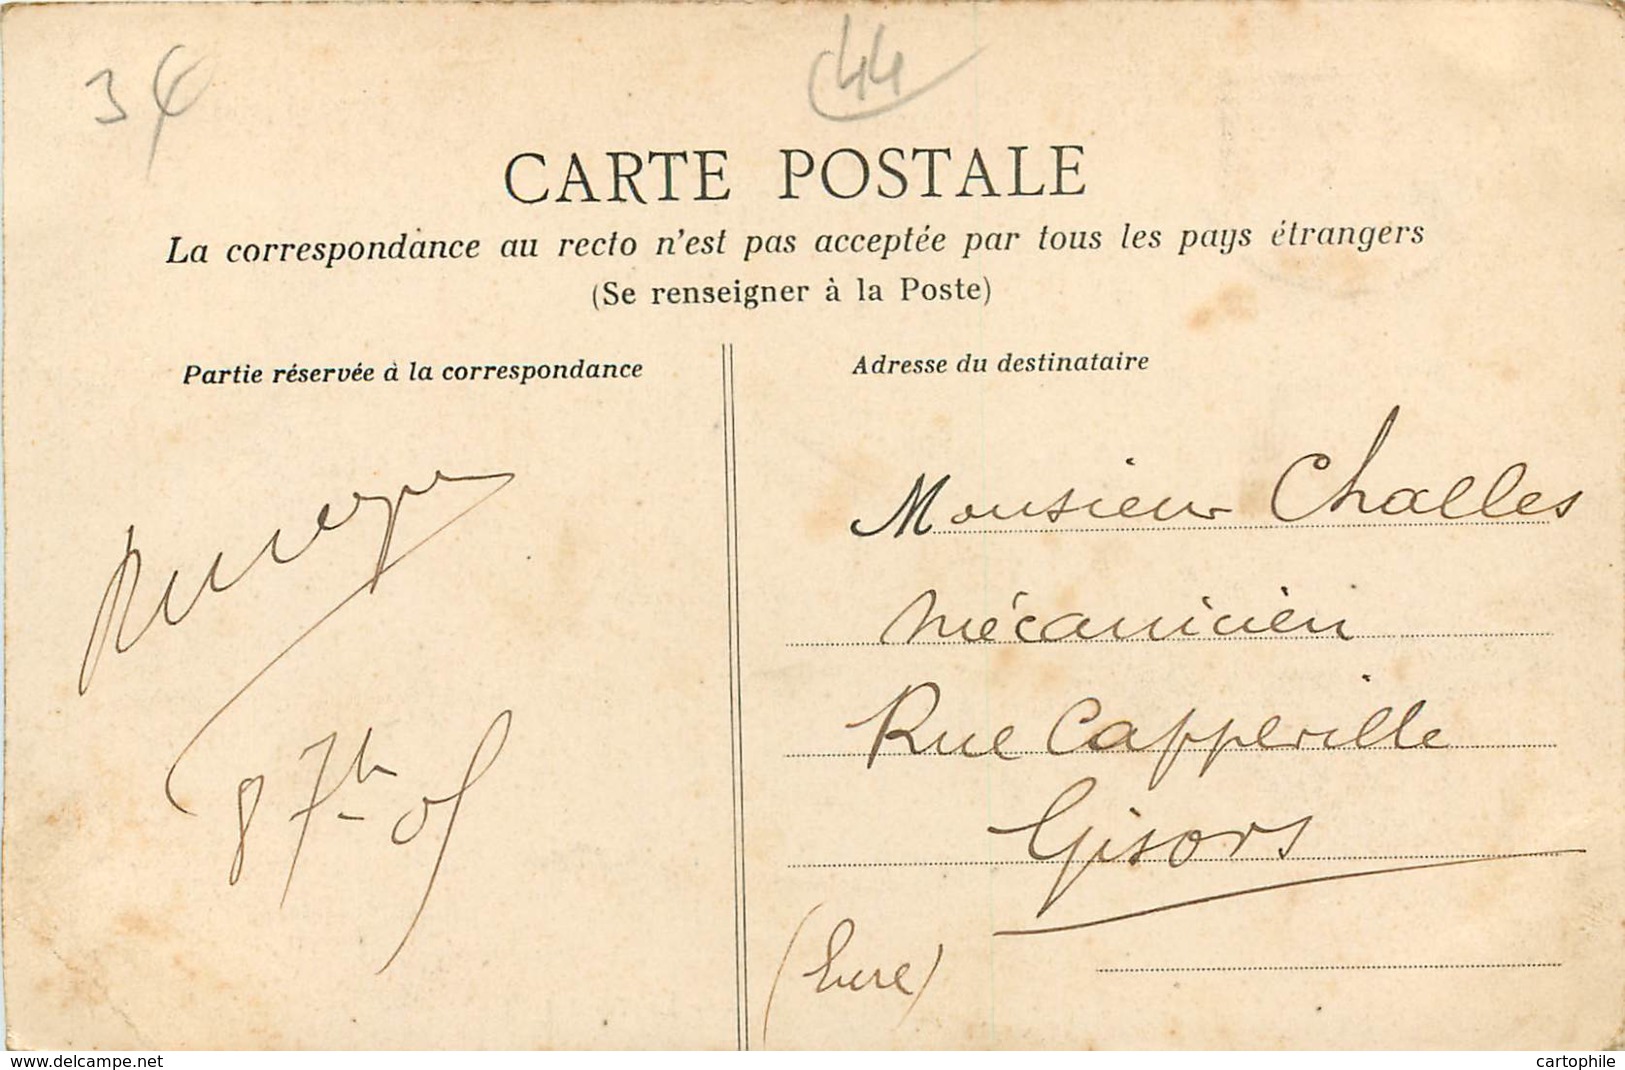 3€
44
CARTE POSTALE
La correspondance au recto n'est pas acceptée par tous les pays étrangers
(Se renseigner à la Poste)
Partie réservée à la correspondance
Adresse du destinataire
8 7bre 05
Monsieur Challes
Mécanicien
Rue Capperille
Gisors
(Eure)
www.delcampe.net
cartophile